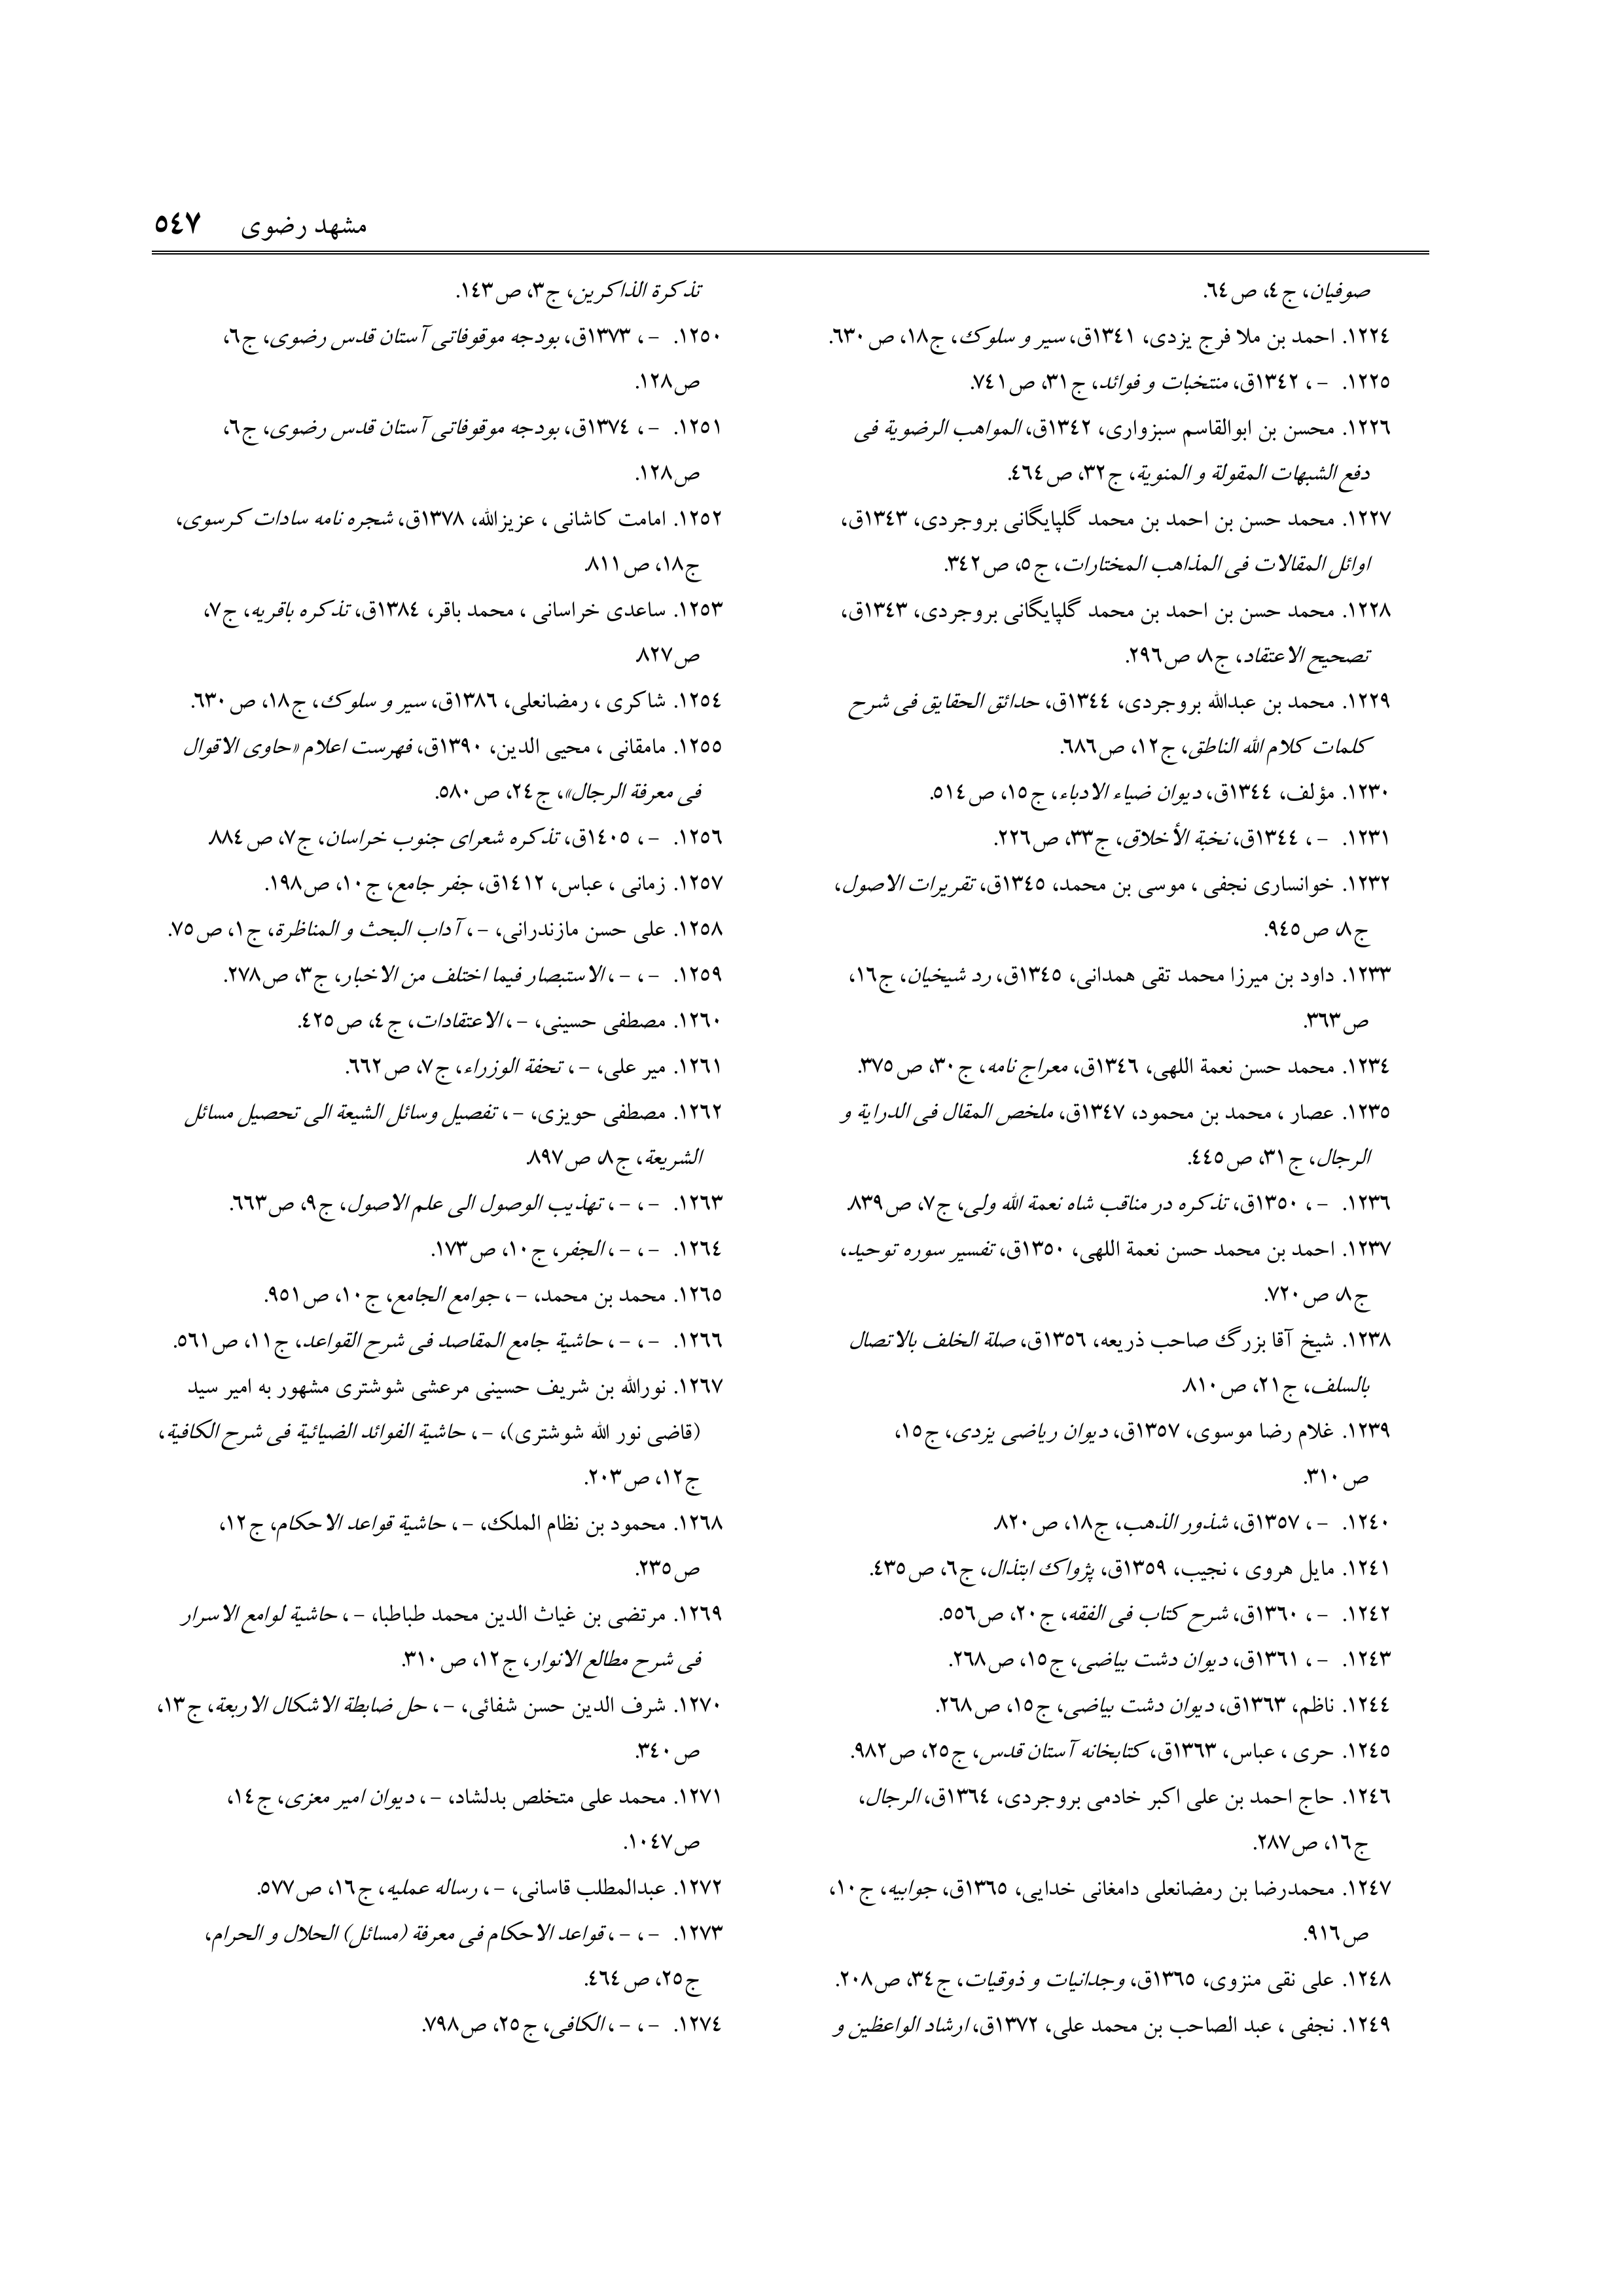 مشهد رضوی ٥٤٧
صوفیان، ج٤، ص٦٤.
١٢٢٤. احمد بن ملا فرج یزدی، ١٣٤١ق، سیر و سلوک، ج١٨، ص٦٣٠.
١٢٢٥. -، ١٣٤٢ق، منتخبات و فوائد، ج٣١، ص٧٤١.
١٢٢٦. محسن بن ابوالقاسم سبزواری، ١٣٤٢ق، المواهب الرضویة فی
دفع الشبهات المقولة و المنویة، ج٣٢، ص٤٦٤.
١٢٢٧. محمد حسن بن احمد بن محمد گلپایگانی بروجردی، ١٣٤٣ق،
اوائل المقالات فی المذاهب المختارات، ج٥، ص٣٤٢.
١٢٢٨. محمد حسن بن احمد بن محمد گلپایگانی بروجردی، ١٣٤٣ق،
تصحیح الاعتقاد، ج٨، ص٢٩٦.
١٢٢٩. محمد بن عبدالله بروجردی، ١٣٤٤ق، حدائق الحقایق فی شرح
کلمات کلام الله الناطق، ج١٢، ص٦٨٦.
١٢٣٠. مؤلف، ١٣٤٤ق، دیوان ضیاء الادباء، ج١٥، ص٥١٤.
١٢٣١. -، ١٣٤٤ق، نخبة الأخلاق، ج٣٣، ص٢٢٦.
١٢٣٢. خوانساری نجفی ، موسی بن محمد، ١٣٤٥ق، تقریرات الاصول،
ج٨، ص٩٤٥.
١٢٣٣. داود بن میرزا محمد تقی همدانی، ١٣٤٥ق، رد شیخیان، ج١٦،
ص٣٦٣.
١٢٣٤. محمد حسن نعمة اللهی، ١٣٤٦ق، معراج نامه، ج٣٠، ص٣٧٥.
١٢٣٥. عصار ، محمد بن محمود، ١٣٤٧ق، ملخص المقال فی الدرایة و
الرجال، ج٣١، ص٤٤٥.
١٢٣٦. -، ١٣٥٠ق، تذکره در مناقب شاه نعمة الله ولی، ج٧، ص٨٣٩.
١٢٣٧. احمد بن محمد حسن نعمة اللهی، ١٣٥٠ق، تفسیر سوره توحید،
ج٨، ص٧٢٠.
١٢٣٨. شیخ آقا بزرگ صاحب ذریعه، ١٣٥٦ق، صلة الخلف بالاتصال
بالسلف، ج٢١، ص٨١٠.
١٢٣٩. غلام رضا موسوی، ١٣٥٧ق، دیوان ریاضی یزدی، ج١٥،
ص٣١٠.
١٢٤٠. -، ١٣٥٧ق، شذور الذهب، ج١٨، ص٨٢٠.
١٢٤١. مایل هروی ، نجیب، ١٣٥٩ق، پژواک ابتذال، ج٦، ص٤٣٥.
١٢٤٢. -، ١٣٦٠ق، شرح کتاب فی الفقه، ج٢٠، ص٥٥٦.
١٢٤٣. -، ١٣٦١ق، دیوان دشت بیاضی، ج١٥، ص٢٦٨.
١٢٤٤. ناظم، ١٣٦٣ق، دیوان دشت بیاضی، ج١٥، ص٢٦٨.
١٢٤٥. حری ، عباس، ١٣٦٣ق، کتابخانه آستان قدس، ج٢٥، ص٩٨٢.
١٢٤٦. حاج احمد بن علی اکبر خادمی بروجردی، ١٣٦٤ق، الرجال،
ج١٦، ص٢٨٧.
١٢٤٧. محمدرضا بن رمضانعلی دامغانی خدایی، ١٣٦٥ق، جوابیه، ج١٠،
ص٩١٦.
١٢٤٨. علی نقی منزوی، ١٣٦٥ق، وجدانیات و ذوقیات، ج٣٤، ص٢٠٨.
١٢٤٩. نجفی ، عبد الصاحب بن محمد علی، ١٣٧٢ق، ارشاد الواعظین و
تذکرة الذاکرین، ج٣، ص١٤٣.
١٢٥٠. -، ١٣٧٣ق، بودجه موقوفاتی آستان قدس رضوی، ج٦،
ص١٢٨.
١٢٥١. -، ١٣٧٤ق، بودجه موقوفاتی آستان قدس رضوی، ج٦،
ص١٢٨.
١٢٥٢. امامت کاشانی ، عزیزالله، ١٣٧٨ق، شجره نامه سادات کرسوی،
ج١٨، ص٨١١.
١٢٥٣. ساعدی خراسانی ، محمد باقر، ١٣٨٤ق، تذکره باقریه، ج٧،
ص٨٢٧.
١٢٥٤. شاکری ، رمضانعلی، ١٣٨٦ق، سیر و سلوک، ج١٨، ص٦٣٠.
١٢٥٥. مامقانی ، محیی الدین، ١٣٩٠ق، فهرست اعلام «حاوی الاقوال
فی معرفة الرجال»، ج٢٤، ص٥٨٠.
١٢٥٦. -، ١٤٠٥ق، تذکره شعرای جنوب خراسان، ج٧، ص٨٨٤.
١٢٥٧. زمانی ، عباس، ١٤١٢ق، جفر جامع، ج١٠، ص١٩٨.
١٢٥٨. علی حسن مازندرانی، -، آداب البحث و المناظرة، ج١، ص٧٥.
١٢٥٩. -، -، الاستبصار فیما اختلف من الاخبار، ج٣، ص٢٧٨.
١٢٦٠. مصطفی حسینی، -، الاعتقادات، ج٤، ص٤٢٥.
١٢٦١. میر علی، -، تحفة الوزراء، ج٧، ص٦٦٢.
١٢٦٢. مصطفی حویزی، -، تفصیل وسائل الشیعة الی تحصیل مسائل
الشریعة، ج٨، ص٨٩٧.
١٢٦٣. -، -، تهذیب الوصول الی علم الاصول، ج٩، ص٦٦٣.
١٢٦٤. -، -، الجفر، ج١٠، ص١٧٣.
١٢٦٥. محمد بن محمد، -، جوامع الجامع، ج١٠، ص٩٥١.
١٢٦٦. -، -، حاشیة جامع المقاصد فی شرح القواعد، ج١١، ص٥٦١.
١٢٦٧. نورالله بن شریف حسینی مرعشی شوشتری مشهور به امیر سید
(قاضی نور الله شوشتری)، -، حاشیة الفوائد الضیائیة فی شرح الکافیة،
ج١٢، ص٢٠٣.
١٢٦٨. محمود بن نظام الملک، -، حاشیة قواعد الاحکام، ج١٢،
ص٢٣٥.
١٢٦٩. مرتضی بن غیاث الدین محمد طباطبا، -، حاشیة لوامع الاسرار
فی شرح مطالع الانوار، ج١٢، ص٣١٠.
١٢٧٠. شرف الدین حسن شفائی، -، حل ضابطة الاشکال الاربعة، ج١٣،
ص٣٤٠.
١٢٧١. محمد علی متخلص بدلشاد، -، دیوان امیر معزی، ج١٤،
ص١٠٤٧.
١٢٧٢. عبدالمطلب قاسانی، -، رساله عملیه، ج١٦، ص٥٧٧.
١٢٧٣. -، -، قواعد الاحکام فی معرفة (مسائل) الحلال و الحرام،
ج٢٥، ص٤٦٤.
١٢٧٤. -، -، الکافی، ج٢٥، ص٧٩٨.